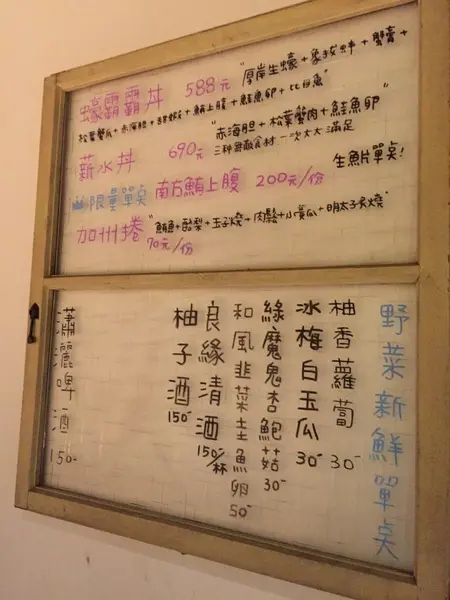 蠔霸霸丼 588元 "厚岸生蠔+象拔蚌+蟹膏+
松葉蟹瓜+赤海胆+甜蝦+鮪上腹+鮭魚卵+比目魚"
薪水丼 690元 "赤海胆+松葉蟹肉+鮭魚卵"
三种無敵食材一次大大滿足
限量單点 南方鮪上腹 200元/份 生魚片單点!
加州捲 "鮪魚+酪梨+玉子燒+肉鬆+小黃瓜+明太子炙燒"
70元/份
野菜新鮮單点
柚香蘿蔔 30-
冰梅白玉瓜 30-
綠魔鬼杏鮑菇 30-
和風韭菜圭魚卵 50-
良緣清酒 150-/杯
柚子酒 150-
瀟灑啤酒 150-